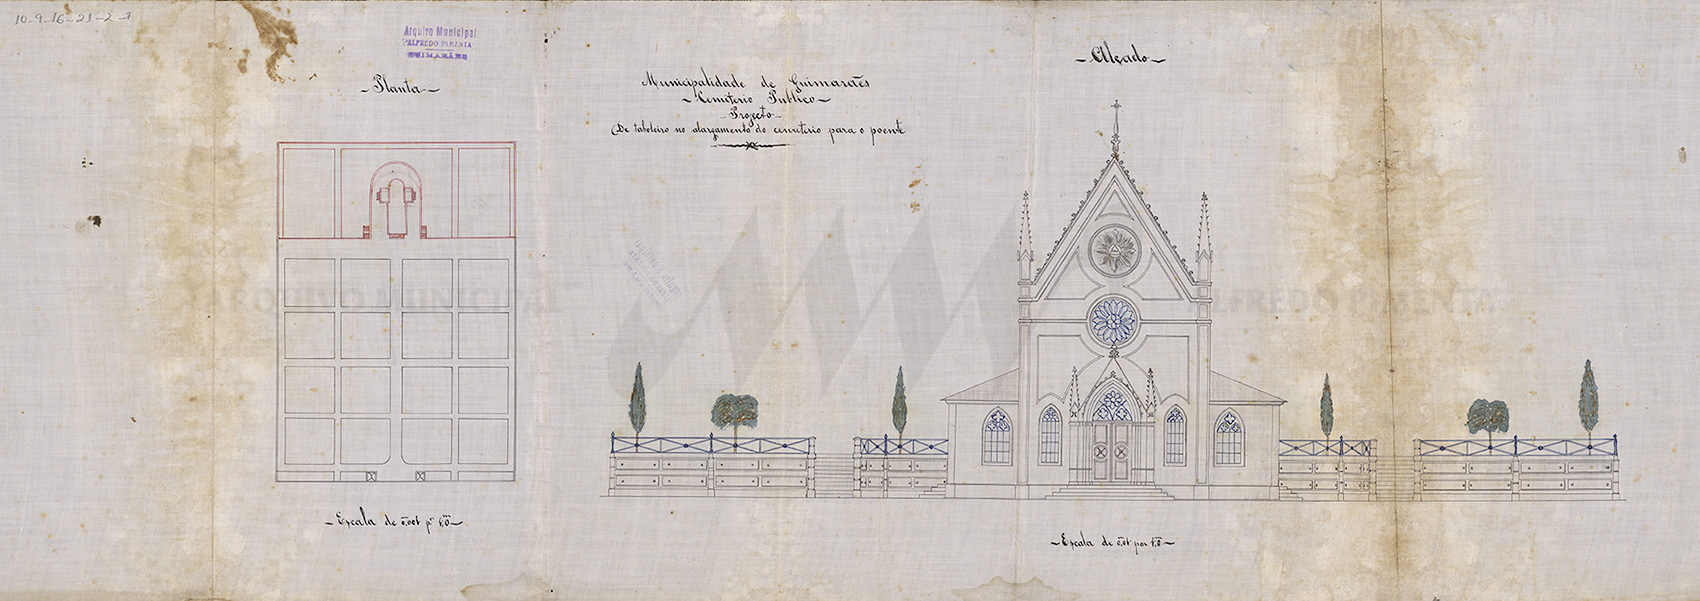 10-9-16-21-2-7
Arquivo Municipal
ALFREDO PIMENTA
GUIMARÃES
Planta
Municipalidade de Guimarães
Cemiterio Publico
Projecto
De taboleiro no alargamento do cemiterio para o poente
Alçado
ARQUIVO MUNICIPAL
ALFREDO PIMENTA
Escala de 0,001 pr 1,0
Escala de 0,01 por 1,0